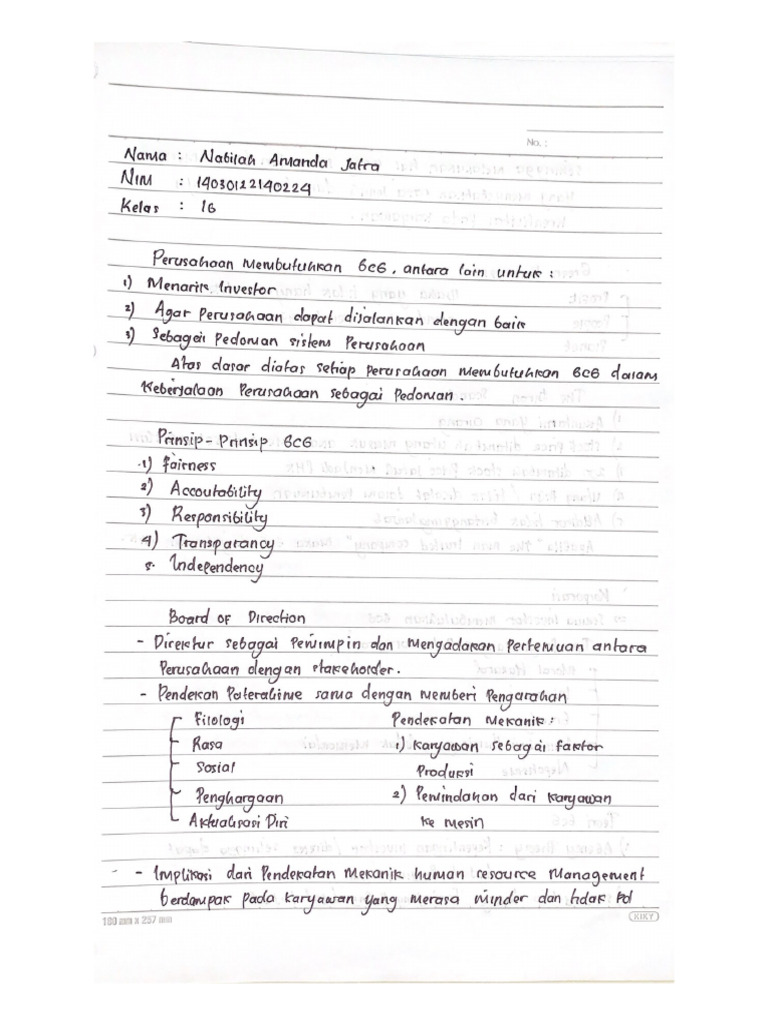 No. :
Nama : Nabilah Amanda Jatra
NIM : 14030122140224
Kelas : 16
Perusahaan Membutuhkan GCG, antara lain untuk :
1) Menarik Investor
2) Agar Perusahaan dapat dijalankan dengan baik
3) Sebagai Pedoman sistem Perusahaan
Atas dasar diatas setiap perusahaan membutuhkan GCG dalam
Keberjalaan Perusahaan sebagai Pedoman.
Prinsip-Prinsip GCG
1) Fairness
2) Accoutability
3) Responsibility
4) Transparancy
5. Independency
Board of Direction
- Direktur sebagai Pemimpin dan Mengadakan Pertemuan antara
Perusahaan dengan stakeholder.
- Pendekan sama dengan memberi Pengarahan
Filologi Pendekatan Mekanik :
Rasa 1) Karyawan sebagai faktor
Sosial Produksi
Penghargaan 2) Pemindahan dari Karyawan
Aktualisasi Diri ke mesin
- Implikasi dari Pendekatan Mekanik human resource Management
berdampak pada karyawan yang merasa minder dan tidak Pd
180 mm x 257 mm KIKY